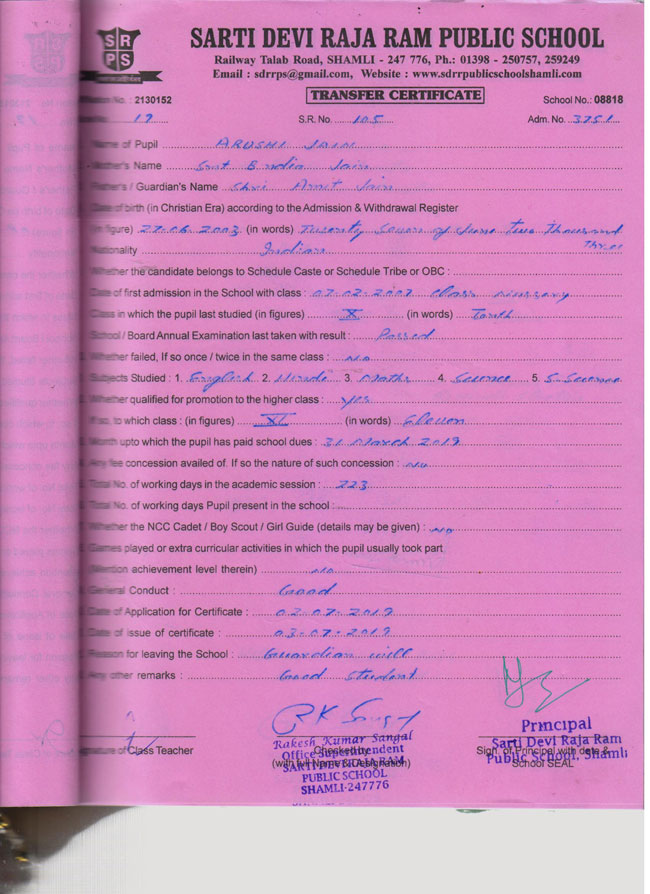 SRPS
SARTI DEVI RAJA RAM PUBLIC SCHOOL
Railway Talab Road, SHAMLI - 247 776, Ph.: 01398 - 250757, 259249
Email : sdrrps@gmail.com, Website : www.sdrrpublicschoolshamli.com
No. : 2130152 TRANSFER CERTIFICATE School No.: 08818
No. 19 S.R. No. 105 Adm. No. 3751
Name of Pupil ARUSHI JAIN
Mother's Name Smt Jain
Father's / Guardian's Name Shri Amit Jain
Date of birth (in Christian Era) according to the Admission & Withdrawal Register
(in figure) 27-06-2003 (in words) Twenty Seven of June Two Thousand
Three
Nationality Indian
Whether the candidate belongs to Schedule Caste or Schedule Tribe or OBC :
Date of first admission in the School with class : 07-02-2007 Class Nursary
Class in which the pupil last studied (in figures) X (in words) Tenth
School / Board Annual Examination last taken with result : Passed
Whether failed, If so once / twice in the same class : No
Subjects Studied : 1. English 2. Hindi 3. Maths 4. Science 5. S. Science
Whether qualified for promotion to the higher class : Yes
If so, to which class : (in figures) XI (in words) Eleven
Month upto which the pupil has paid school dues : 31 March 2019
Any fee concession availed of. If so the nature of such concession : No
Total No. of working days in the academic session : 223
Total No. of working days Pupil present in the school :
Whether the NCC Cadet / Boy Scout / Girl Guide (details may be given) : No
Games played or extra curricular activities in which the pupil usually took part
(Mention achievement level therein) No
General Conduct : Good
Date of Application for Certificate : 03-07-2019
Date of issue of certificate : 03-07-2019
Reason for leaving the School : Guardian will
Any other remarks : Good Student
Signature of Class Teacher
Rakesh Kumar Sangal
Office Superintendent
Checked by
SARTI DEVI RAJA RAM
(with full Name & Designation)
PUBLIC SCHOOL
SHAMLI-247776
Principal
Sarti Devi Raja Ram
Sign. of Principal with date &
Public School, Shamli
School SEAL